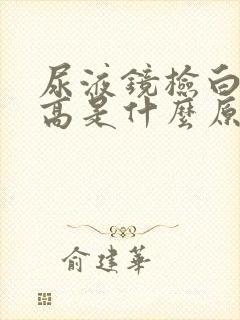 尿液鏡檢白
高是什麼原
俞建華